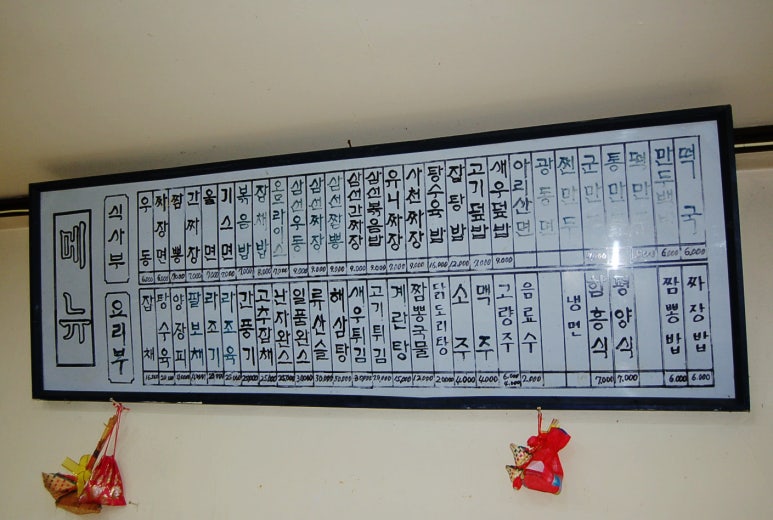 메뉴
식사부
우동 6,000
짜장면 6,000
짬뽕
간짜장 7,000
울면 7,000
기스면 7,000
볶음밥 7,000
잡채밥 8,000
오므라이스 7,000
삼선우동 9,000
삼선짜장 9,000
삼선짬뽕 9,000
삼선간짜장 9,000
삼선볶음밥 9,000
유니짜장 7,000
사천짜장 9,000
탕수육밥 15,000
잡탕밥 12,000
고기덮밥 9,000
새우덮밥 9,000
아리산면
광동면
찐만두
군만두
통만
떡만
만두백 6,000
떡국 6,000
요리부
잡채
탕수육
양장피
팔보채
라조기
라조육
깐풍기 20,000
고추잡채 25,000
난자완스 25,000
일품완스 30,000
류산슬 30,000
해삼탕 50,000
새우튀김 30,000
고기튀김 20,000
계란탕 15,000
짬뽕국물 12,000
닭도리탕
소주 4,000
맥주 4,000
고량주
음료수 2,000
냉면
함흥식 7,000
평양식 7,000
짬뽕밥 6,000
짜장밥 6,000